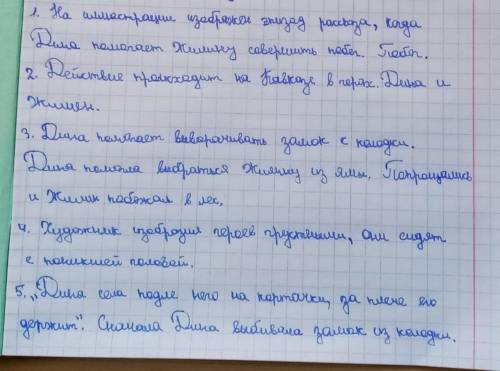 1. На иллюстрации изображен эпизод рассказа, когда
Дина помогает Жилину совершить побег. Побег.
2. Действие происходит на Кавказе в горах. Дина и
Жилин.
3. Дина помогает выворачивать замок с колодки.
Дина помогла выбраться Жилину из ямы. Попрощались
и Жилин побежал в лес.
4. Художник изобразил героев грустными, они сидят
с поникшей головой.
5. „Дина села подле него на карточки, за плечо его
держит". Сначала Дина выбивала замок из колодки.